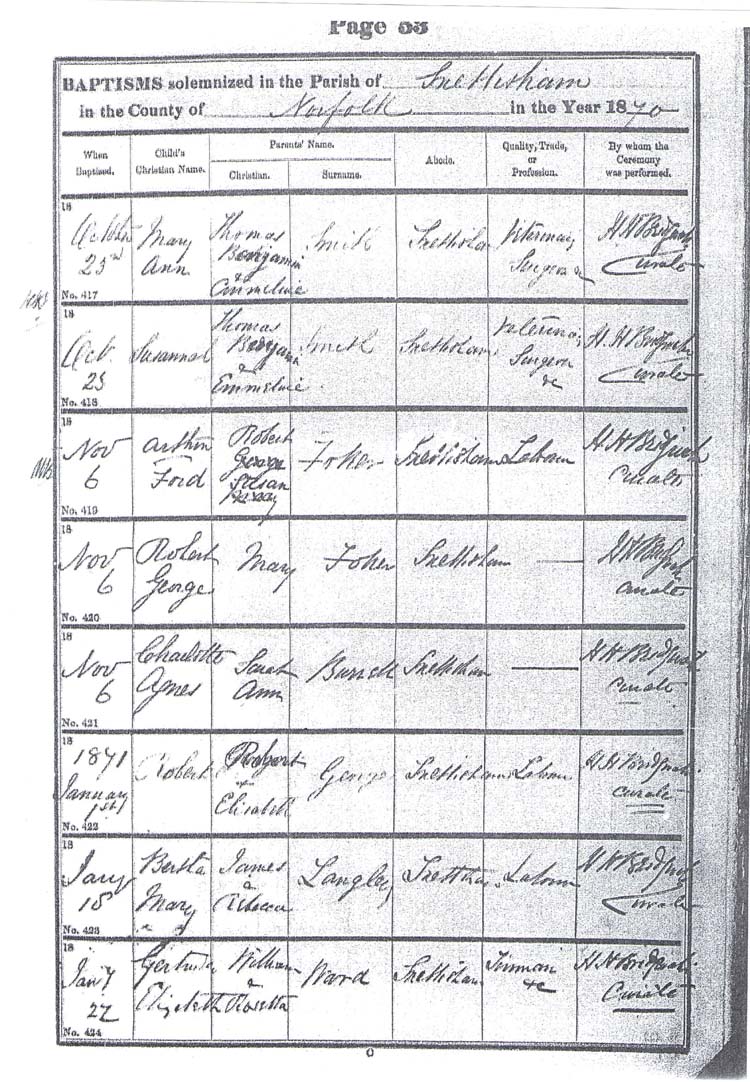 Page 53
BAPTISMS solemnized in the Parish of Snettisham
in the County of Norfolk in the Year 1870
When Baptised.
Child's Christian Name.
Parents' Name.
Christian.
Surname.
Abode.
Quality, Trade, or Profession.
By whom the Ceremony was performed.
18
October
23rd
No. 417
Mary
Ann
Thomas
Benjamin
&
Emmeline
Smith
Snettisham
Surgeon &c
Curate
18
Oct.
23
No. 418
Susannah
Thomas
Benjamin
&
Emmeline
Smith
Snettisham
Surgeon
&c
Curate
18
Nov
6
No. 419
Arthur
Ford
Robert
George
Susan
Foker
Snettisham
Labour
H H Bridgwater
Curate
18
Nov
6
No. 420
Robert
George
Mary
Foker
Snettisham
Curate
18
Nov
6
No. 421
Charlotte
Agnes
Sarah
Ann
Burrell
Snettisham
Curate
18
1871
January
1st
No. 422
Robert
Robert
&
Elizabeth
George
Snettisham
Labour
Curate
18
Jany
18
No. 423
Bertha
Mary
James
&
Rebecca
Langley
Labour
Curate
18
Jany
22
No. 424
Gertrude
Elizabeth
William
&
Rosetta
Ward
Snettisham
Tinman
&c
Curate